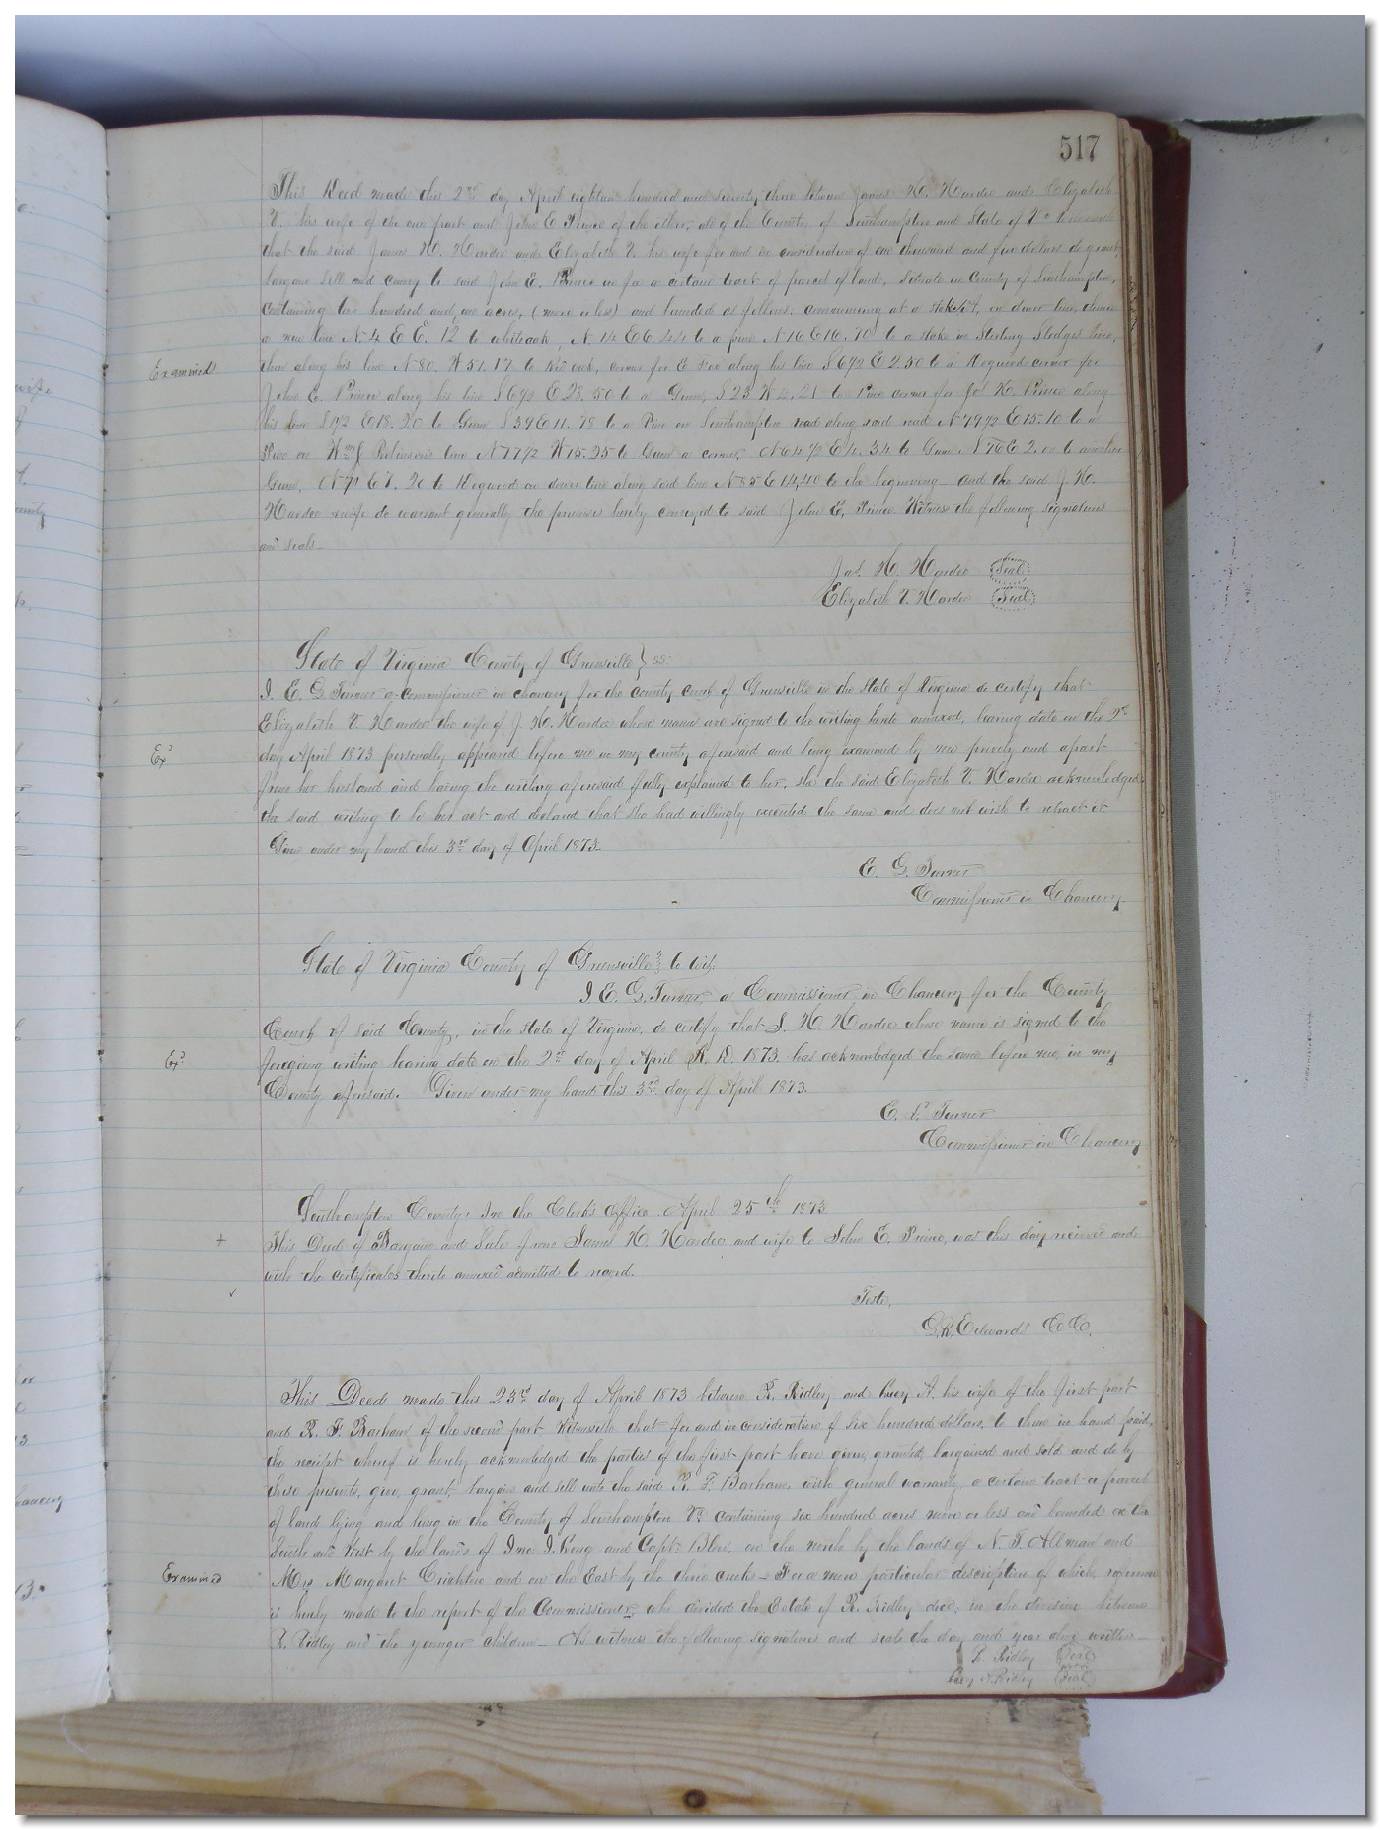 517
This Deed made this 2nd day April eighteen hundred and seventy three between James H. Hardee and Elizabeth
V. his wife of the one part and John E Prince of the other, all of the County of Southampton and State of Va
that the said James H. Hardee and Elizabeth V. his wife for and in consideration of one thousand and five dollars do grant,
bargain sell and convey to said John E. Prince in fee a certain tract of parcel of land, situate in County of Southampton,
containing two hundred and one acres, (more or less) and bounded as follows: commencing at a stake in line, thence
a new line N 4 E E. 12 to whiteoak, N 14 E 6.44 to a pine N 16 E 16.70 to a stake in Sterling Sledges line,
Examined
then along his line N 80. W 51.17 to Red oak, corner for E Fox along his line S 67½ E 2.50 to a Hogwood corner for
John E. Prince along his line S 67½ E 28.50 to a Gum, S 23 W 4.21 to Pine corner for Jos H. Prince along
his line S 1½ E 18.20 to Gum S 39 E 11.78 to a Pine on Southampton road along said road N 79½ E 15.10 to a
Pine on Wm J Robinson's line N 77½ W 15.25 to Gum a corner, N 64½ E 4.34 to Gum N 76 E 2. to another
Gum, N 71 E 7.20 to Hogwood on line along said line N 85 E 14.40 to the beginning and the said J. H.
Hardee wife do warrant generally the premises hereby conveyed to said John E. Prince Witness the following signatures
and seals
Jas. H. Hardee Seal
Elizabeth V. Hardee Seal
State of Virginia County of Greensville } ss:
I. E. G. Turner a Commissioner in chancery for the county court of Greensville in the State of Virginia do certify that
Elizabeth V. Hardee the wife of J. H. Hardee whose names are signed to the writing hereto annexed, bearing date on the 2nd
Exd
day April 1873 personally appeared before me in my county aforesaid and being examined by me privily and apart
from her husband and having the writing aforesaid fully explained to her, she the said Elizabeth V. Hardee acknowledged
the said writing to be her act and declared that she had willingly executed the same and does not wish to retract it
Given under my hand this 3rd day of April 1873.
E. G. Turner
Commissioner in Chancery
State of Virginia County of Greensville to wit:
I E. G. Turner, a Commissioner in Chancery for the County
Court of said County, in the state of Virginia, do certify that J. H. Hardee whose name is signed to the
Exd
foregoing writing bearing date on the 2nd day of April A. D. 1873 has acknowledged the same before me in my
County aforesaid. Given under my hand this 3rd day of April 1873.
E. G. Turner
Commissioner in Chancery
Southampton County: In the Clerk's Office April 25th 1873
+
This Deed of Bargain and Sale from James H. Hardee and wife to John E. Prince, was this day received and
with the certificates thereto annexed admitted to record.
Teste,
G.R. Edwards C.C.
This Deed made this 23rd day of April 1873 between R. Ridley and Lucy A. his wife of the first part
and R. F. Barham of the second part Witnesseth that for and in consideration of six hundred dollars, to them in hand paid,
the receipt whereof is hereby acknowledged the parties of the first part have given, granted, bargained and sold and do by
these presents, give, grant, bargain and sell unto the said R. F. Barham, with general warranty, a certain tract or parcel
of land lying and being in the County of Southampton Va. containing six hundred acres more or less and bounded on the
South and West by the lands of Jno. J. Long and Capt. Blow, on the north by the lands of N. T. Allman and
Examined
Mrs Margaret Crichton and on the East by the three creeks - For a more particular description of which, reference
is hereby made to the report of the Commissioners who divided the Estate of R. Ridley decd, in the division between
R. Ridley and the younger children - As witness the following signatures and seals the day and year above written -
R. Ridley Seal
Lucy A. Ridley Seal